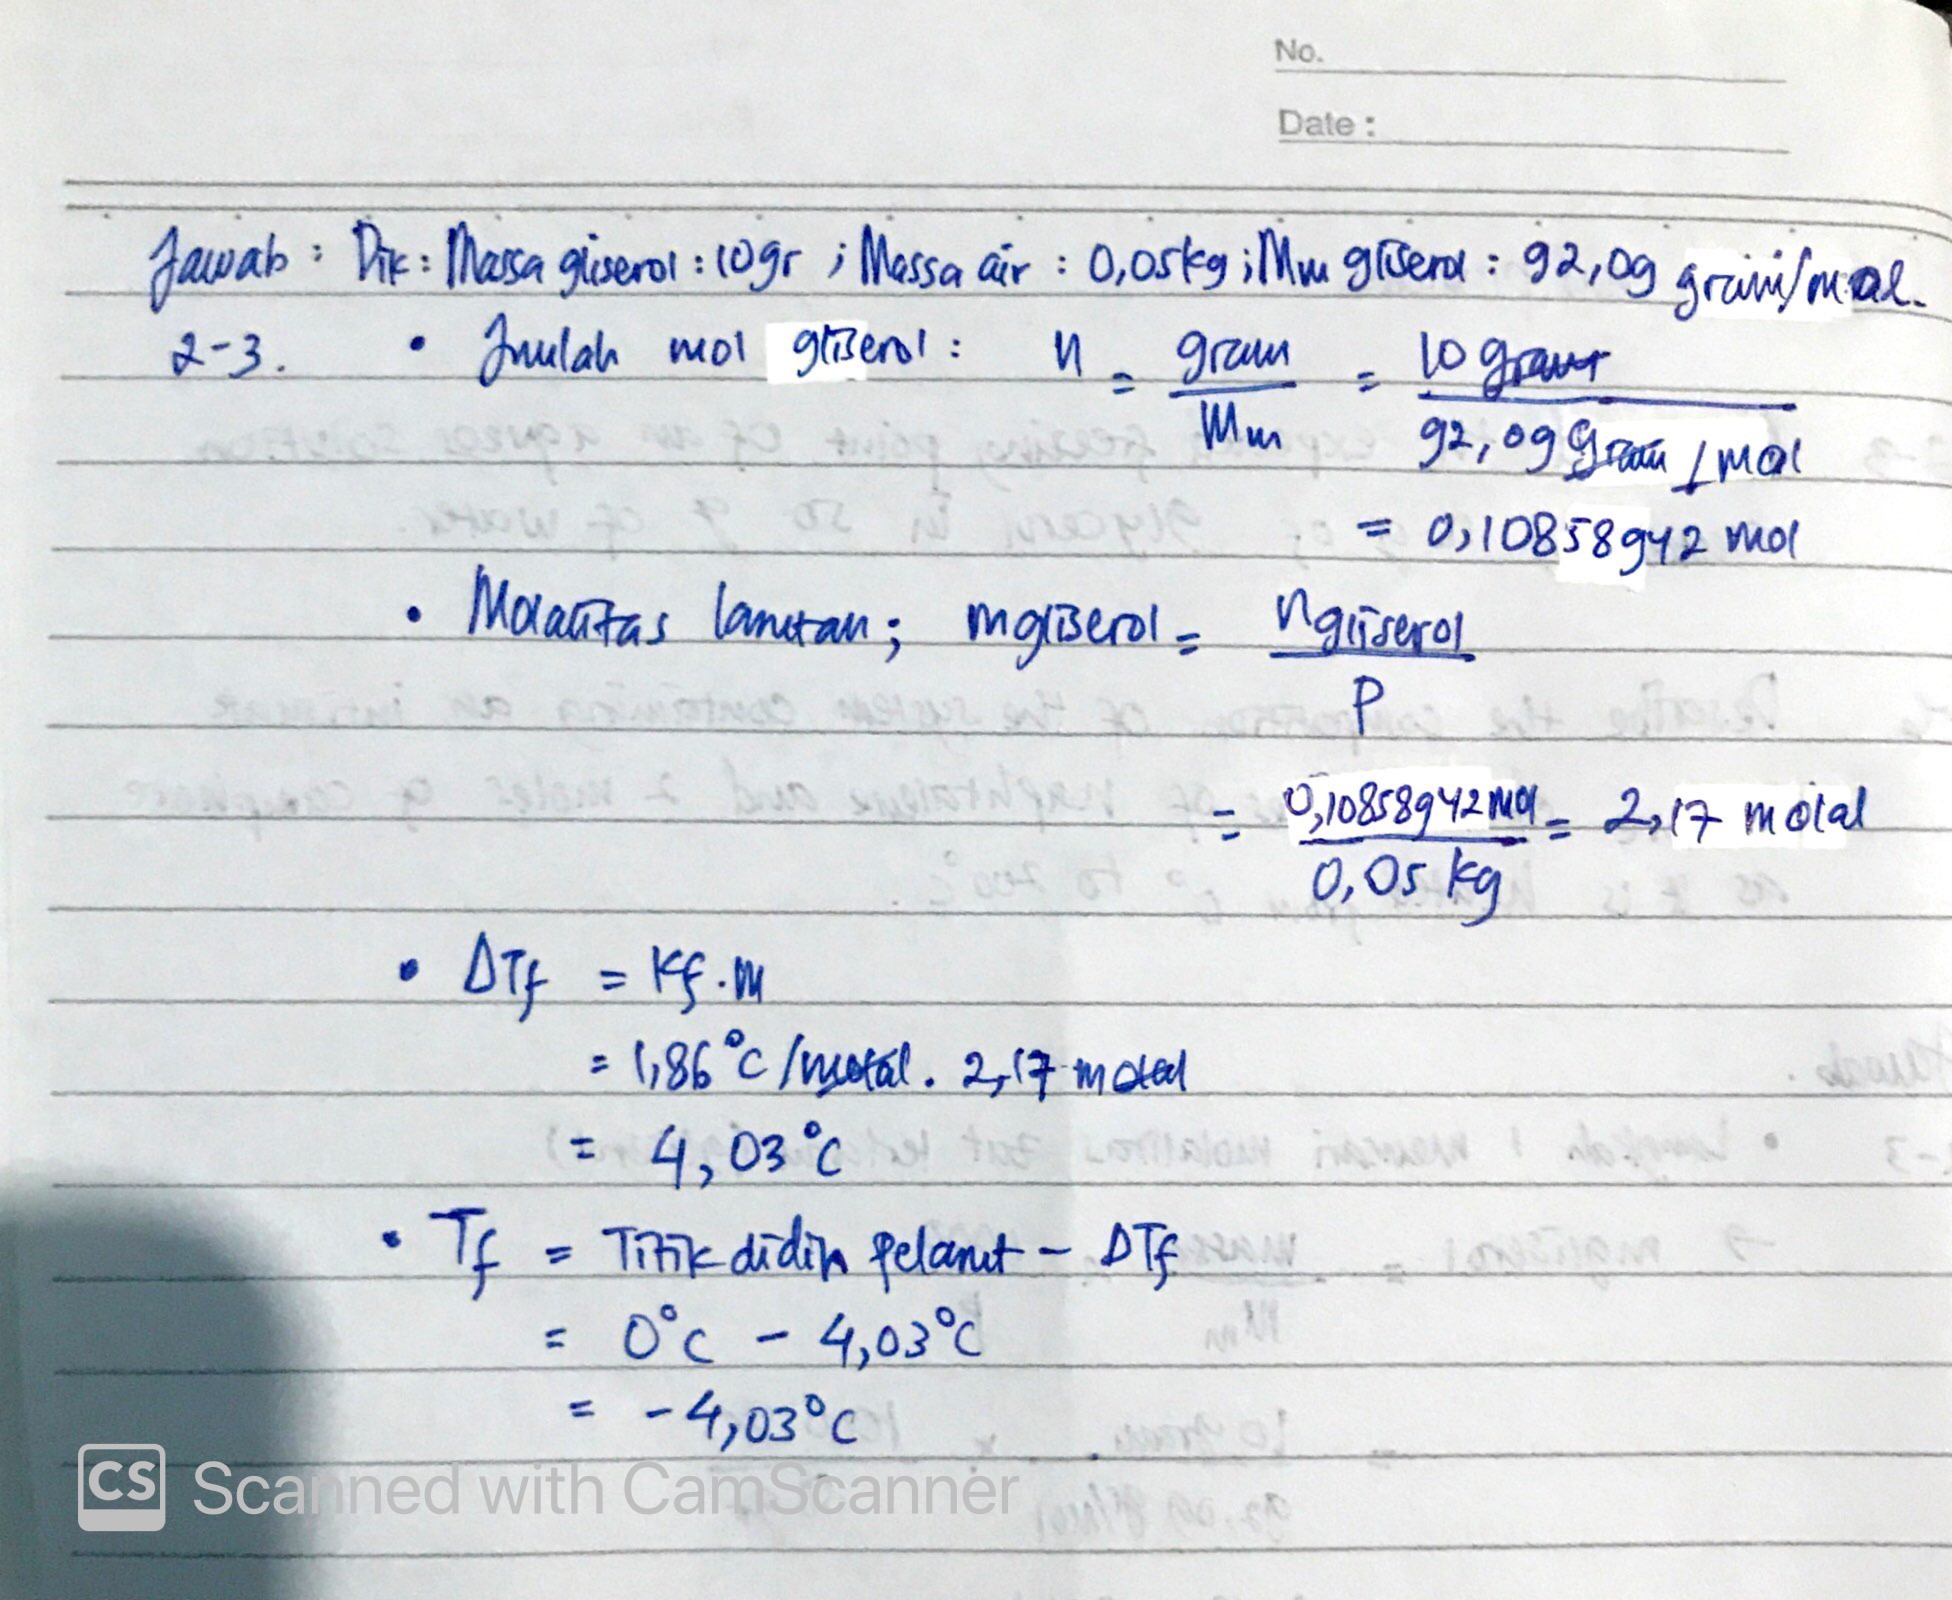 No.
Date :
Jawab : Dik : Massa gliserol : 10 gr ; Massa air : 0,05 kg ; Mm gliserol : 92,09 gram/mol.
2-3. • Jumlah mol gliserol : n = gram / Mm = 10 gram / 92,09 gram/mol
= 0,10858942 mol
• Molalitas larutan ; m gliserol = n gliserol / P
= 0,10858942 mol / 0,05 kg = 2,17 molal
• ΔTf = Kf . m
= 1,86 °C/molal . 2,17 molal
= 4,03 °C
• Tf = Titik didih pelarut - ΔTf
= 0°C - 4,03°C
= -4,03°C
CS Scanned with CamScanner